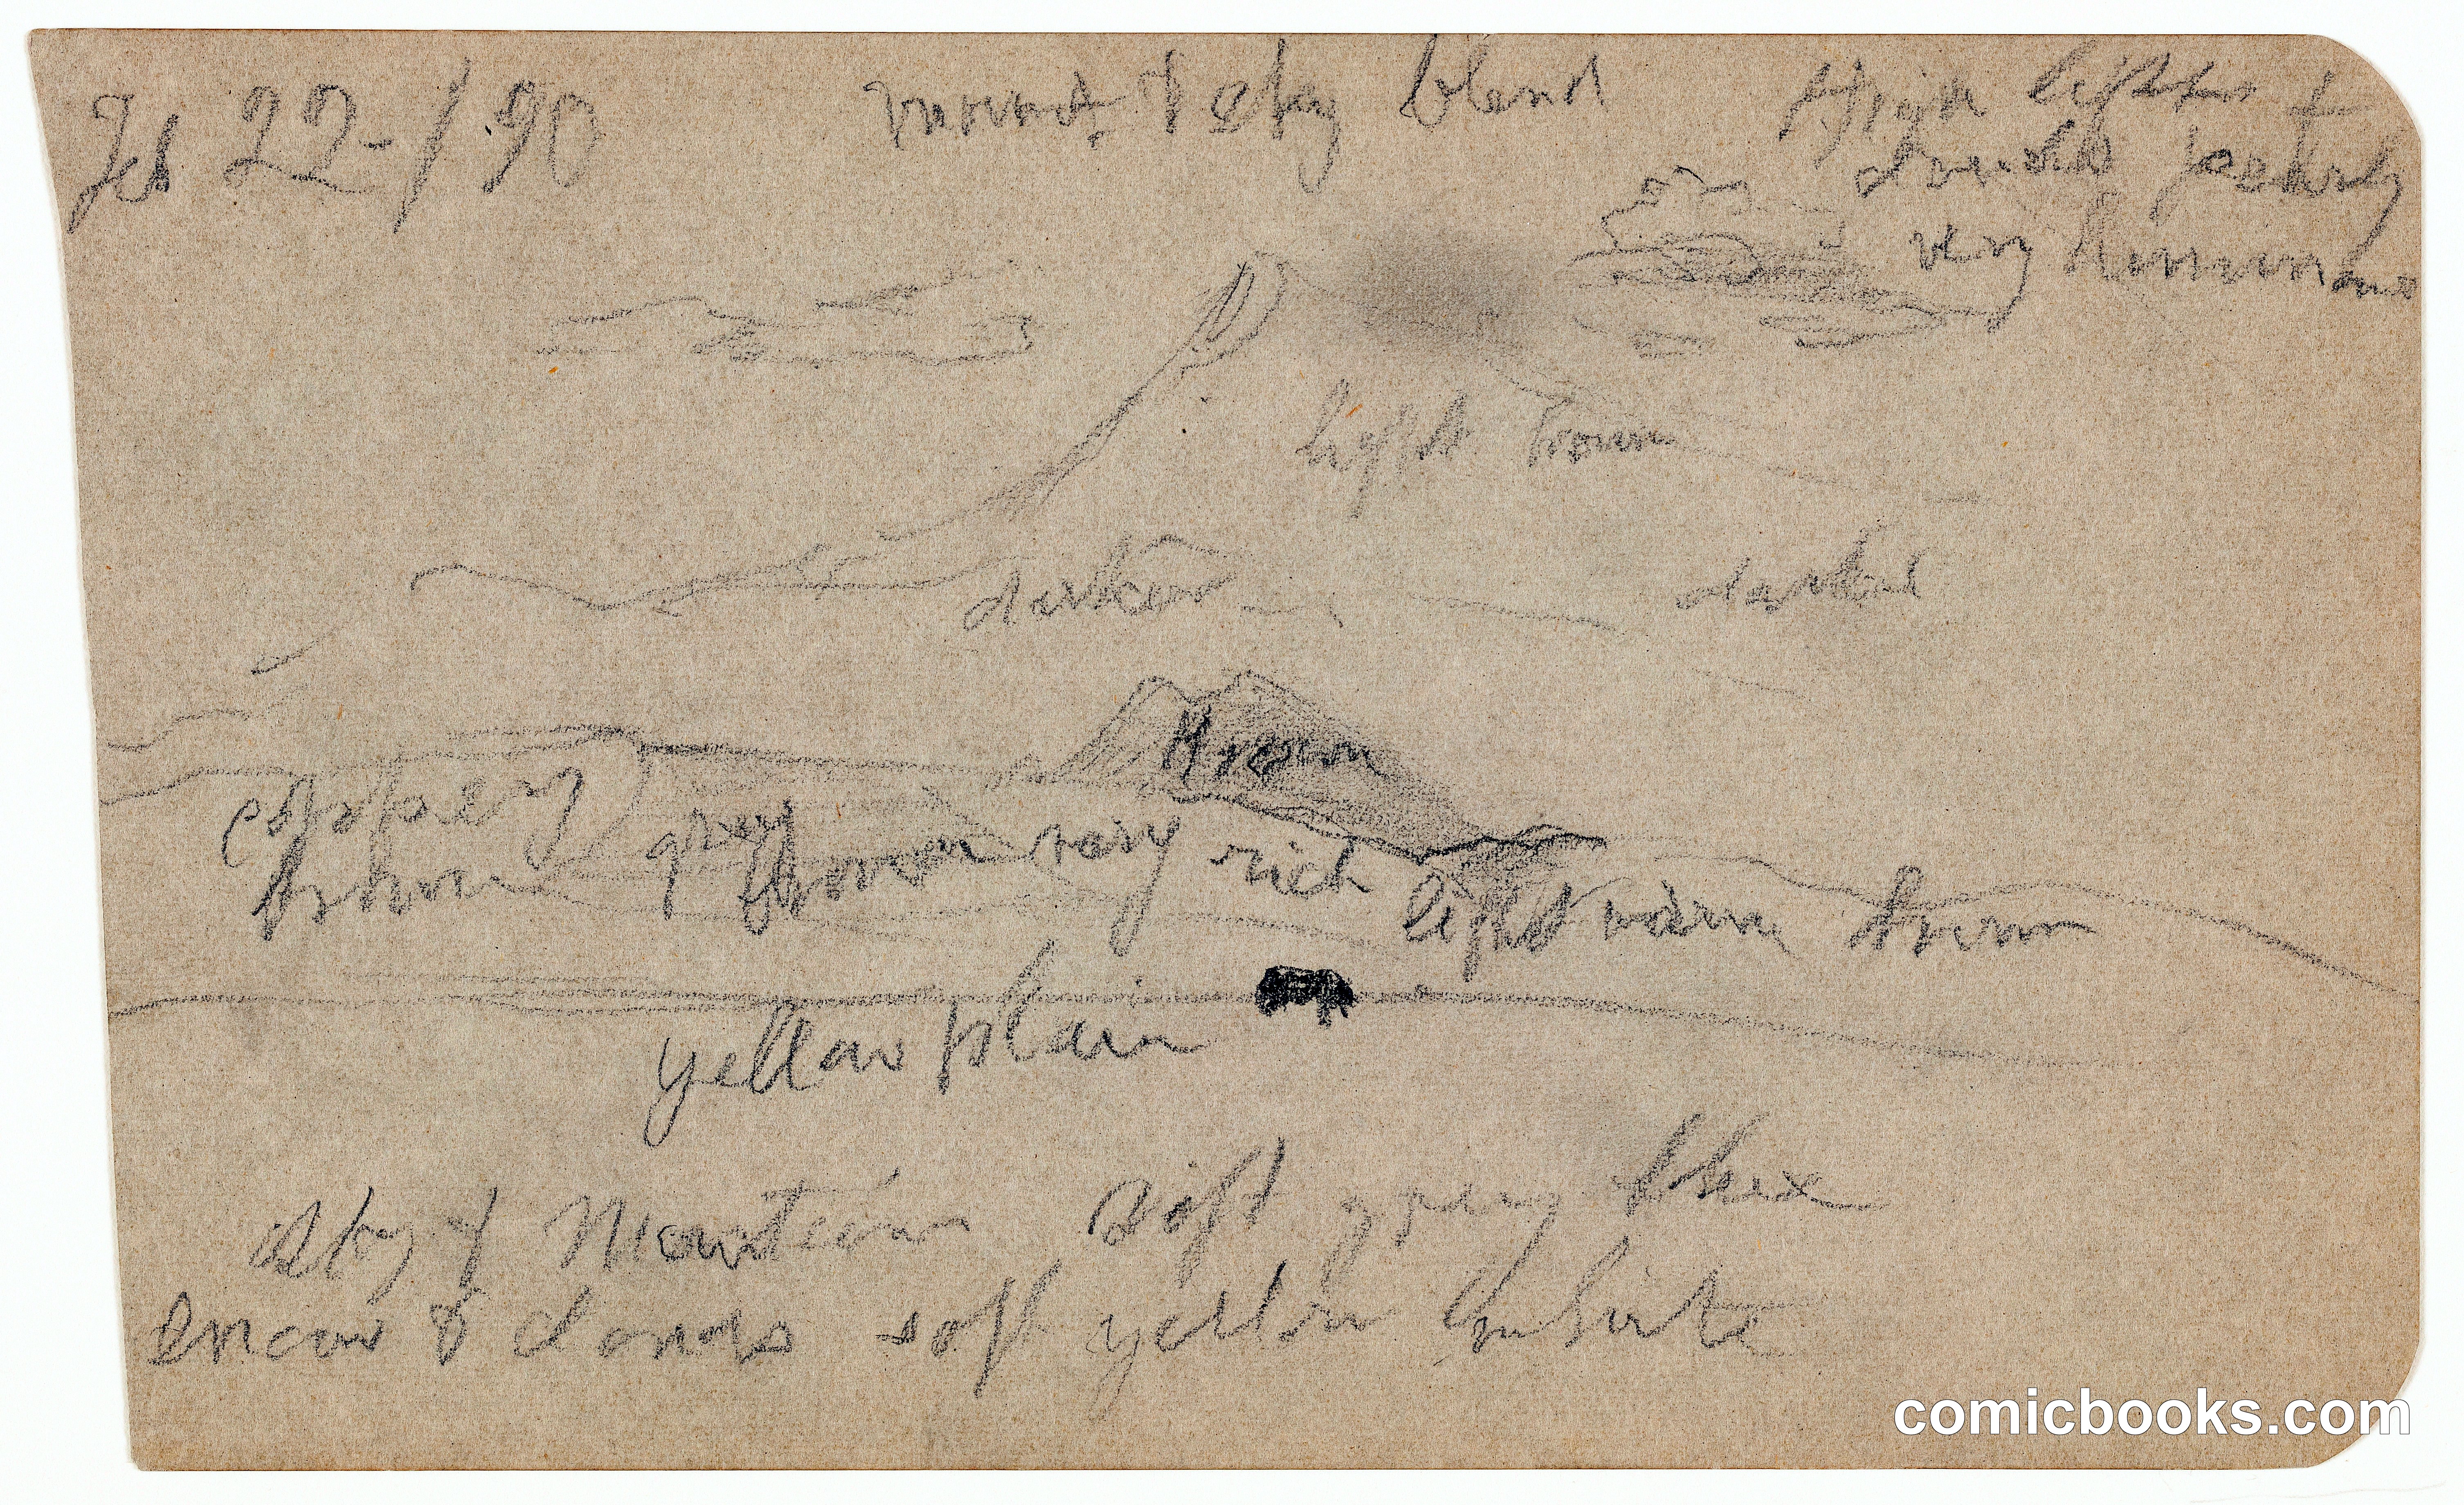 22-/90
& sky blend
High lights
very
light brown
darker
darker
brown
coppery
brown
grey brown very rich
light warm brown
yellow plain
sky & Mountain soft grey blue
snow & clouds soft yellow white
comicbooks.com